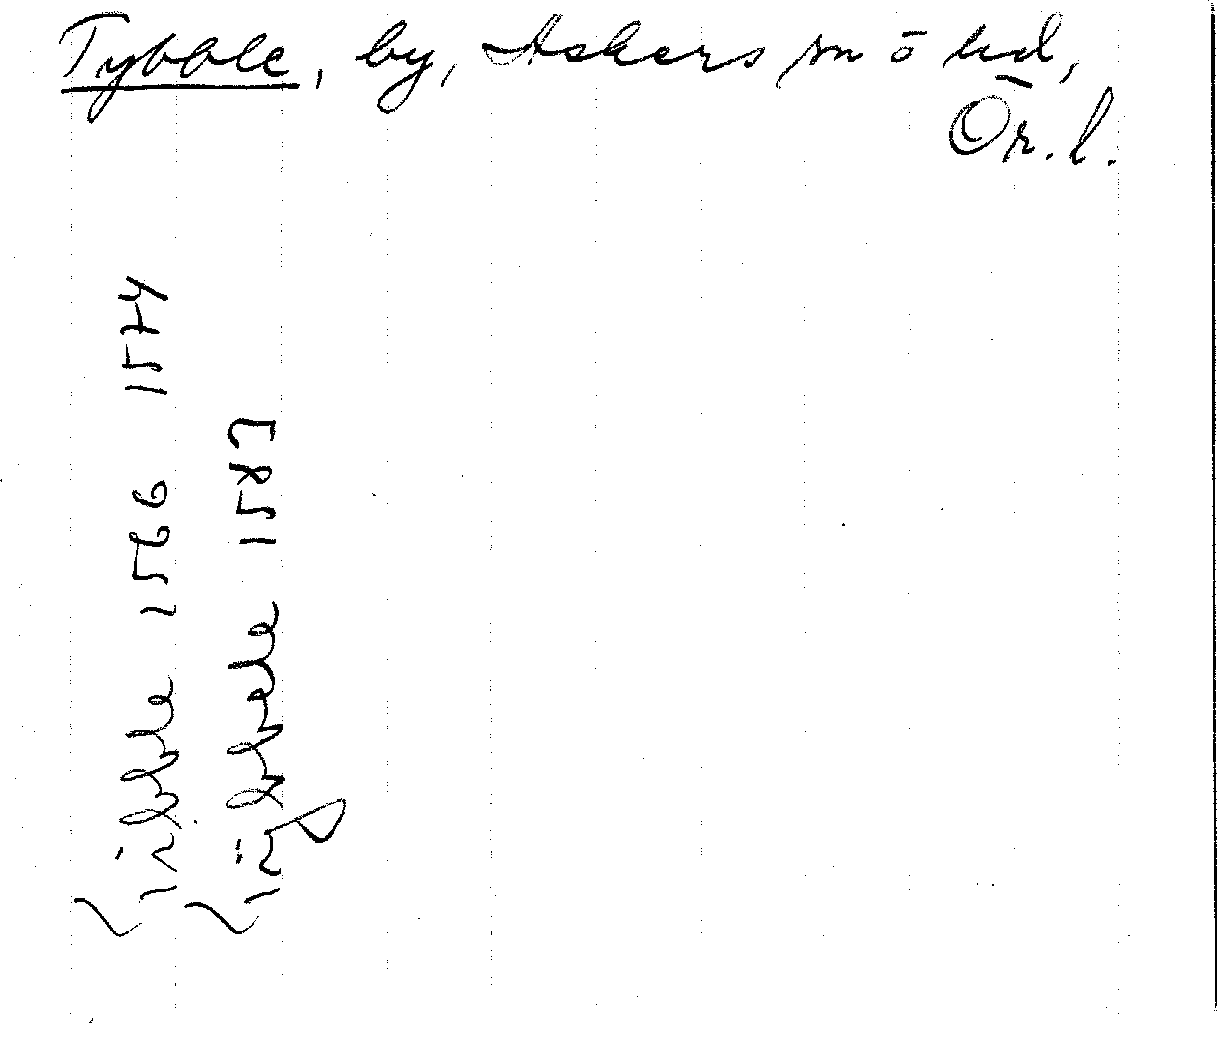 Tybble, by, Askers sn ō hd,
Ör. l.
Tibble 1566 1574
Tÿbbele 1587